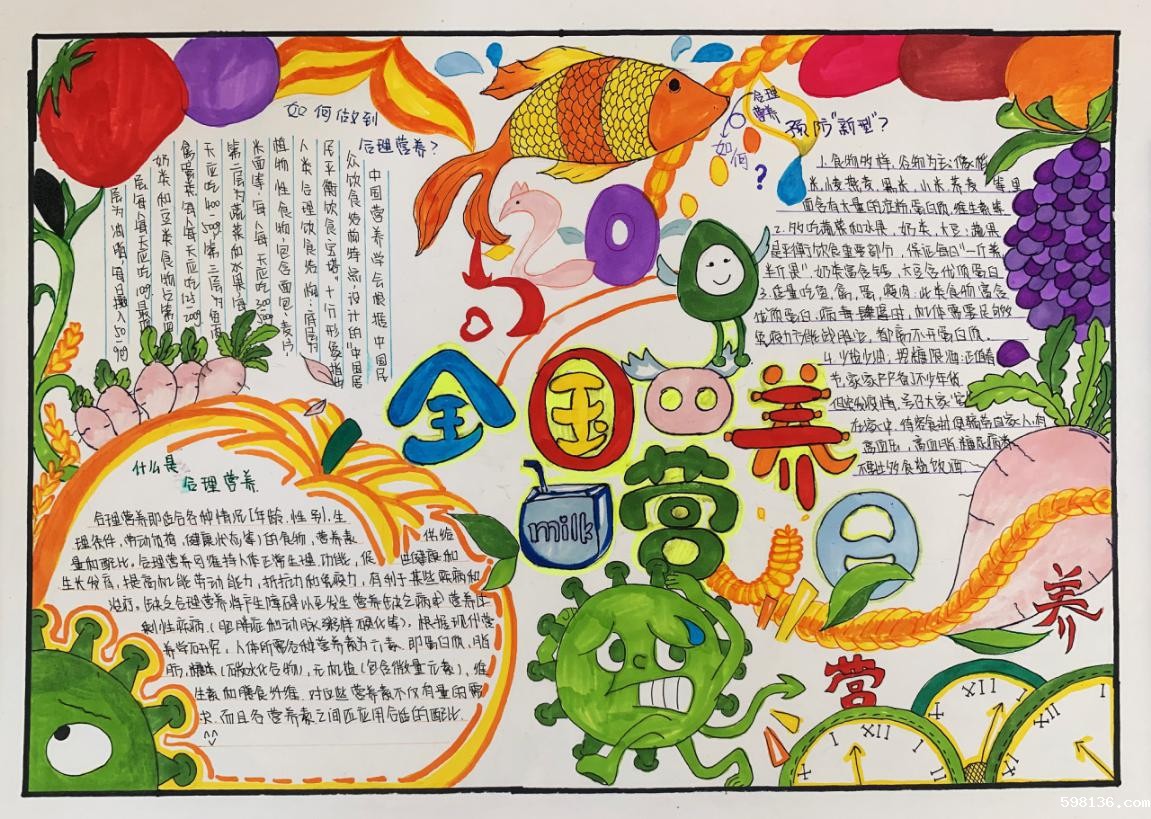 如何做到
合理营养？
中国营养学会根据中国居民
众饮食结构特点设计的“中国居
民平衡饮食宝塔”十分形象指出
人类合理饮食结构：底层为
植物性食物，包含面包、麦片、
米面等，每人每天应吃300-500g
第二层为蔬菜和水果，每
天应吃400-500g，第三层为鱼、肉
禽、蛋类，每人每天应吃125-200g
奶类和豆类食物占第四
层，每人每天应吃150g，最顶
层为油脂，每日摄入50-9g
合理
营养
如何
？
预防“新型”？
1.食物多样，谷物为主：像稻
米、小麦、燕麦、黑米、小米、荞麦等里
面含有大量的淀粉、蛋白质、维生素等
2.多吃蔬菜和水果、奶类、大豆：蔬果
是平衡饮食重要部分，保证每日“一斤菜
半斤果”奶类富含钙，大豆含优质蛋白
3.适量吃鱼、禽、蛋、瘦肉：此类食物富含
优质蛋白
免疫力才能战胜它，都离不开蛋白质。
4.少盐少油；控糖限油：正值春
节，家家户户备了不少年货
但蛇
高血压，高血脂，糖尿病者
不要过多食盐饮酒
2
0
2
5
全国
营养
日
milk
什么是
合理营养
合理营养即适合各种情况（年龄、性别、生
理条件、劳动负荷、健康状态等）的食物、营养素 供给
量和配比。合理营养可维持人体正常生理功能，促 进健康和
生长发育，提高机能劳动能力，抵抗力和免疫力，有利于某些疾病和
治疗。缺乏合理营养将产生障碍以至发生营养缺乏病或营养过
剩性疾病（肥胖症和动脉粥样硬化等）。根据现代营
养学研究，人体所需各种营养素为六素，即蛋白质、脂
肪、糖类（碳水化合物）、无机盐（包含微量元素）、维
生素和膳食纤维。对这些营养素不仅有量的需
求，而且各营养素之间还应用合适的配比。
营
养
I
XII
X
XII
I
I
XII
598136.com